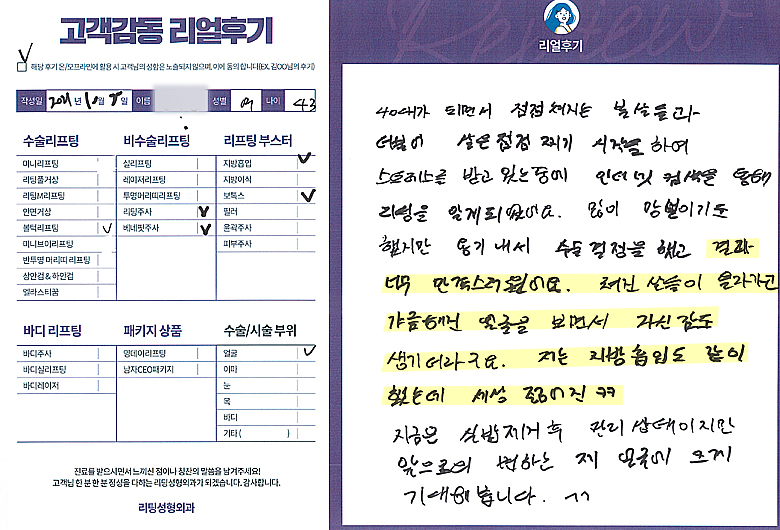 고객감동 리얼후기
해당 후기 온/오프라인에 활용 시 고객님의 성함은 노출되지 않으며, 이에 동의 합니다(EX. 김OO님의 후기)
작성일 2021년 10월 8일 이름 성별 여 나이 43
수술리프팅
미니리프팅
리팅풀거상
리팅M리프팅
안면거상
볼턱리프팅
미니브이리프팅
반투명 머리띠 리프팅
상안검 & 하안검
엘라스티꿈
비수술리프팅
실리프팅
레이저리프팅
투명머리띠리프팅
리팅주사
베네핏주사
리프팅 부스터
지방흡입
지방이식
보톡스
필러
윤곽주사
피부주사
바디 리프팅
바디주사
바디실리프팅
바디레이저
패키지 상품
명데이리프팅
남자CEO패키지
수술/시술 부위
얼굴
이마
눈
목
바디
기타 ( )
진료를 받으시면서 느끼신 점이나 칭찬의 말씀을 남겨주세요!
고객님 한 분 한 분 정성을 다하는 리팅성형외과가 되겠습니다. 감사합니다.
리팅성형외과
Review
리얼후기
40대가 되면서 점점 처지는 볼살들과
더불어 살은 점점 찌기 시작을 하여
스트레스를 받고 있는중에 인터넷 검색을 통해
리팅을 알게되었어요. 많이 망설이기도
했지만 용기 내서 수술 결정을 했고 결과
너무 만족스러웠어요. 쳐진 살들이 올라가고
갸름해진 얼굴을 보면서 자신감도
생기더라구요. 저는 지방흡입도 같이
했는데 세상 젊어진 ㅋㅋ
지금은 실밥제거 후 관리 상태이지만
앞으로의 변하는 제 얼굴에 크게
기대해봅니다. ^^